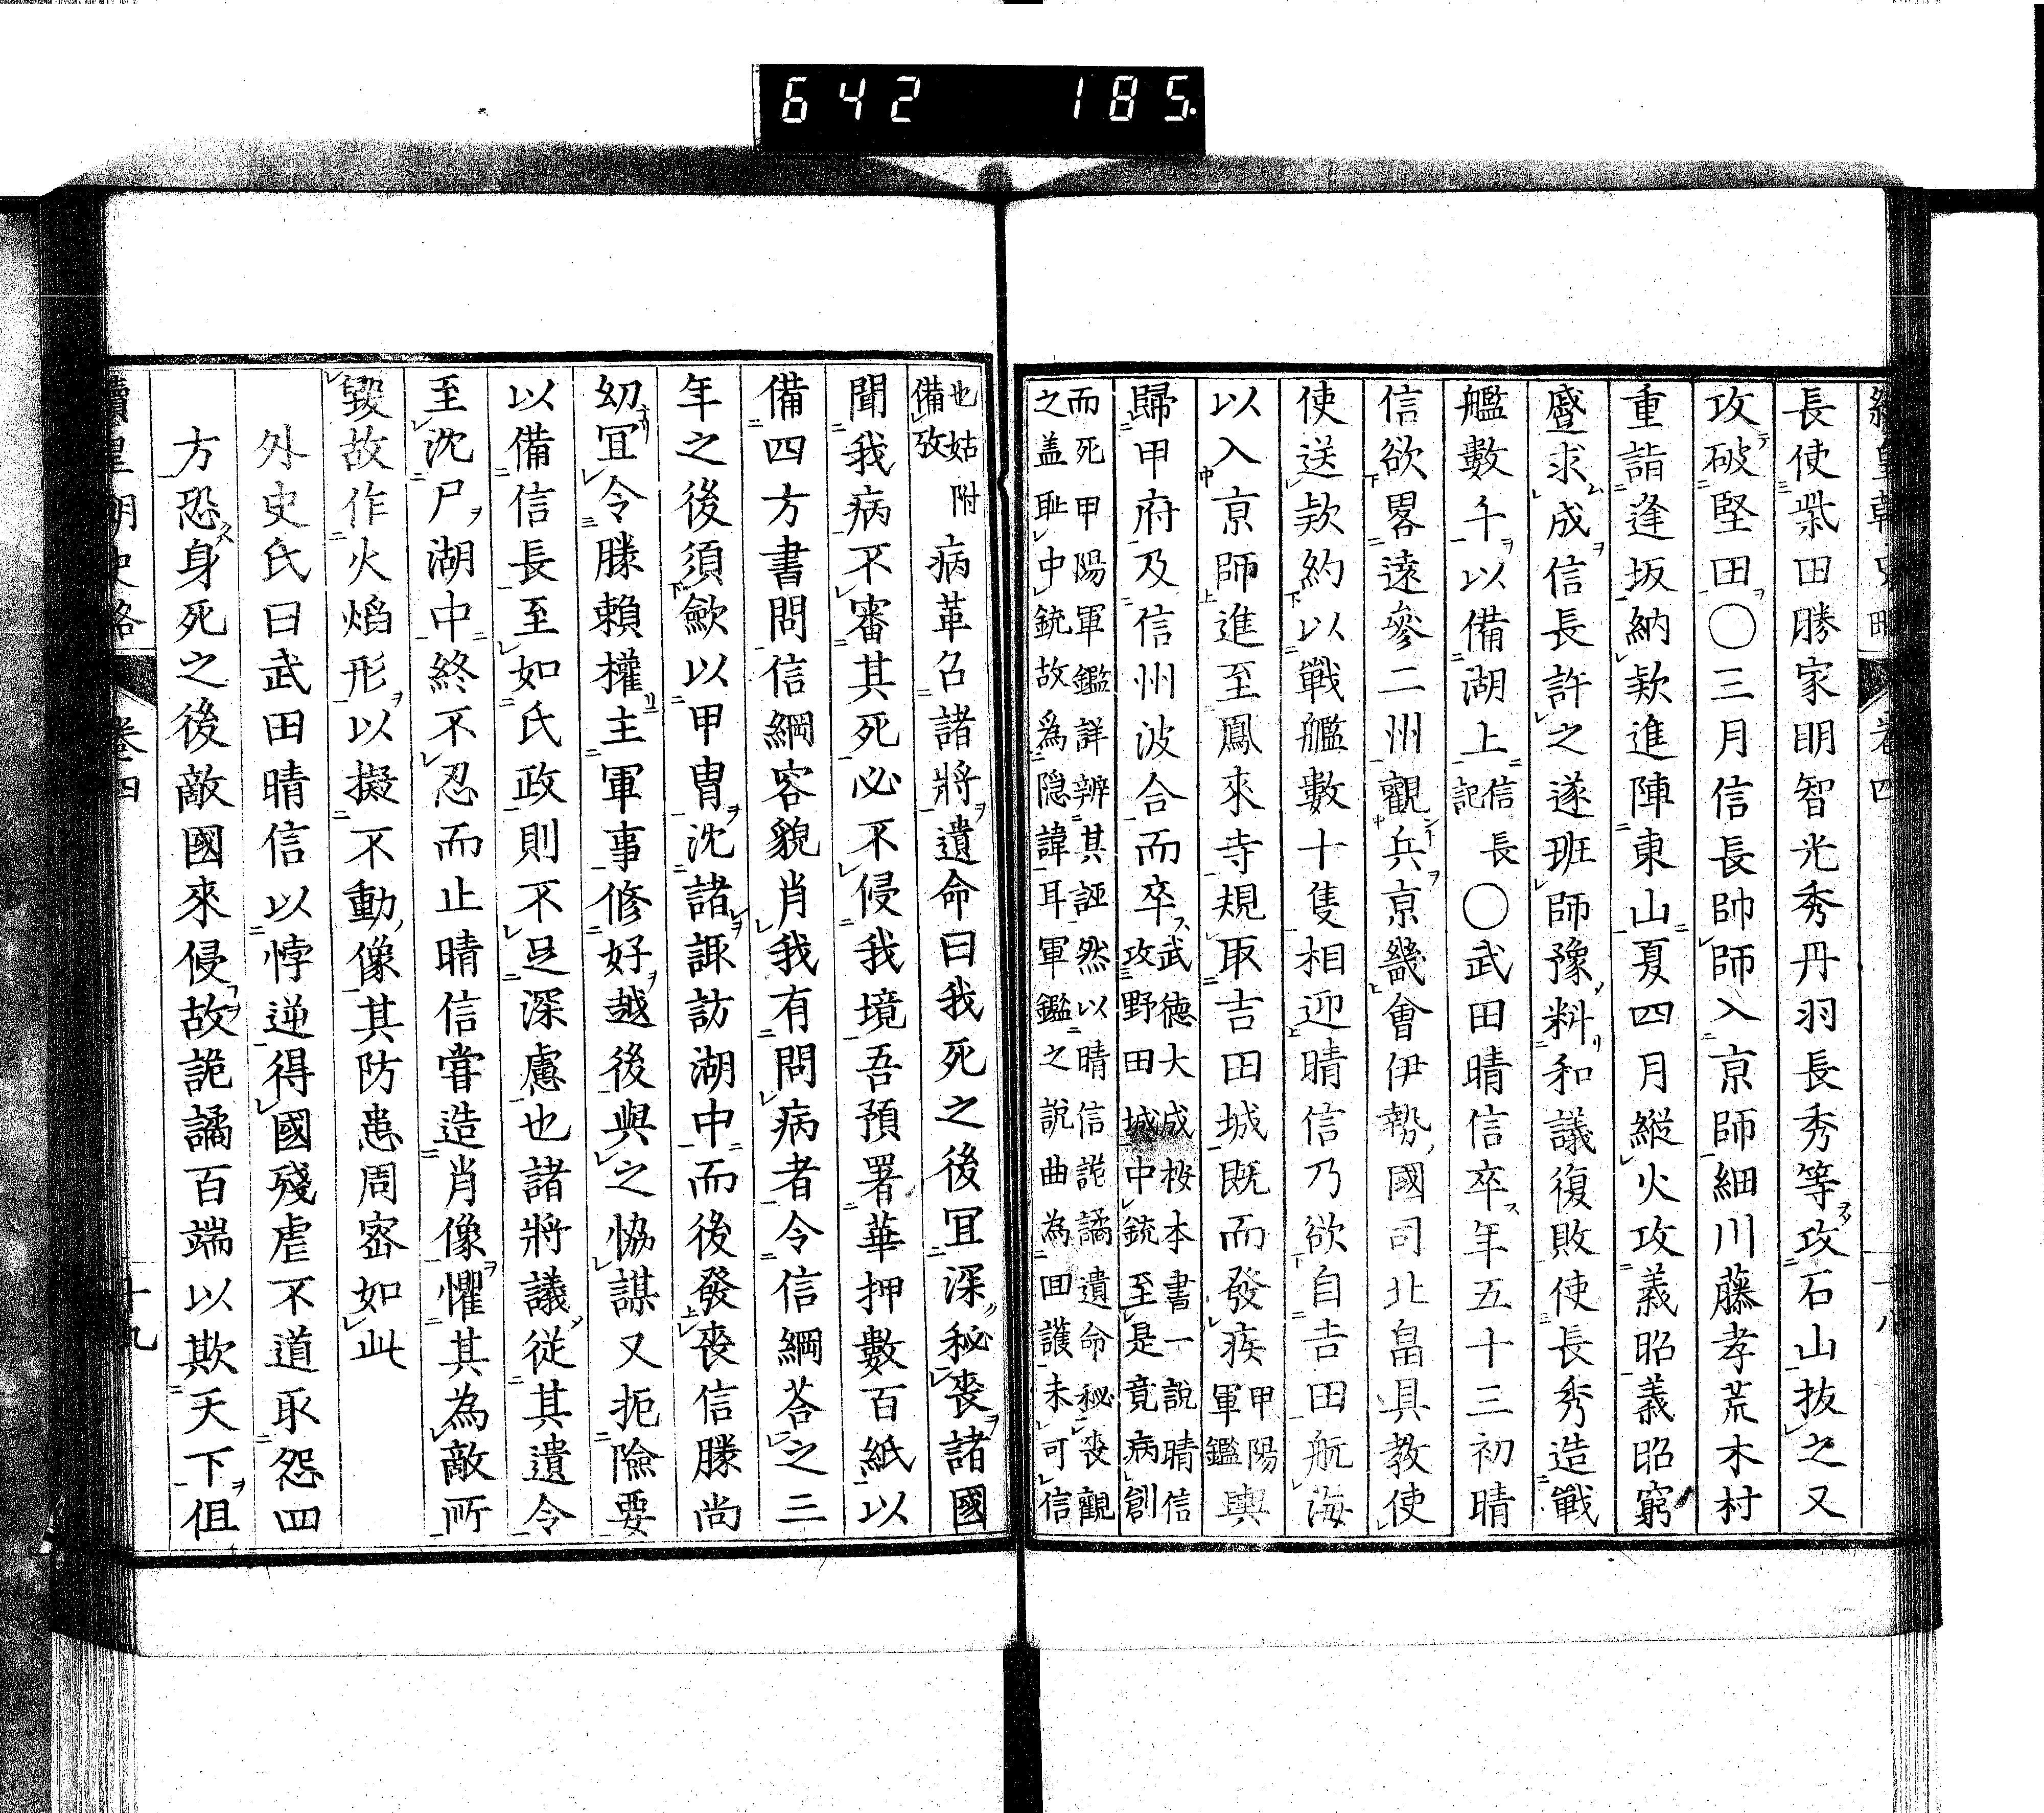 642 185.
長使柴田勝家明智光秀丹羽長秀等攻石山抜之又
攻破堅田〇三月信長帥師入京師細川藤孝荒木村
重詣逢坂納款進陣東山夏四月縦火攻義昭義昭窮
蹙求成信長許之遂班師豫料和議復敗使長秀造戰
艦數千以備湖上信長記〇武田晴信卒年五十三初晴
信欲畧遠參二州觀兵京畿會伊勢國司北畠具教使
使送款約以戰艦數十隻相迎晴信乃欲自吉田航海
以入京師進至鳳來寺規取吉田城既而發疾甲陽軍鑑輿
歸甲府及信州波合而卒武德大成按本書一說晴信攻野田城中銃至是竟病創
而死甲陽軍鑑詳辨其誣然以晴信詭譎遺命秘喪觀之盖耻中銃故爲隠諱耳軍鑑之說曲為囬護未可信
也姑附備攷病革召諸將遺命曰我死之後冝深秘喪諸國
聞我病不審其死必不侵我境吾預署華押數百紙以
備四方書問信綱容貌肖我有問病者令信綱荅之三
年之後須歛以甲冑沈諸諏訪湖中而後發喪信勝尚
幼冝令勝賴權主軍事修好越後與之恊謀又扼險要
以備信長至如氏政則不足深慮也諸將議從其遺令
至沈尸湖中終不忍而止晴信嘗造肖像懼其為敵所
毀故作火焰形以擬不動像其防患周宻如此
外史氏曰武田晴信以悖逆得國殘虐不道取怨四
方恐身死之後敵國來侵故詭譎百端以欺天下但
續皇朝史略 卷四 十九